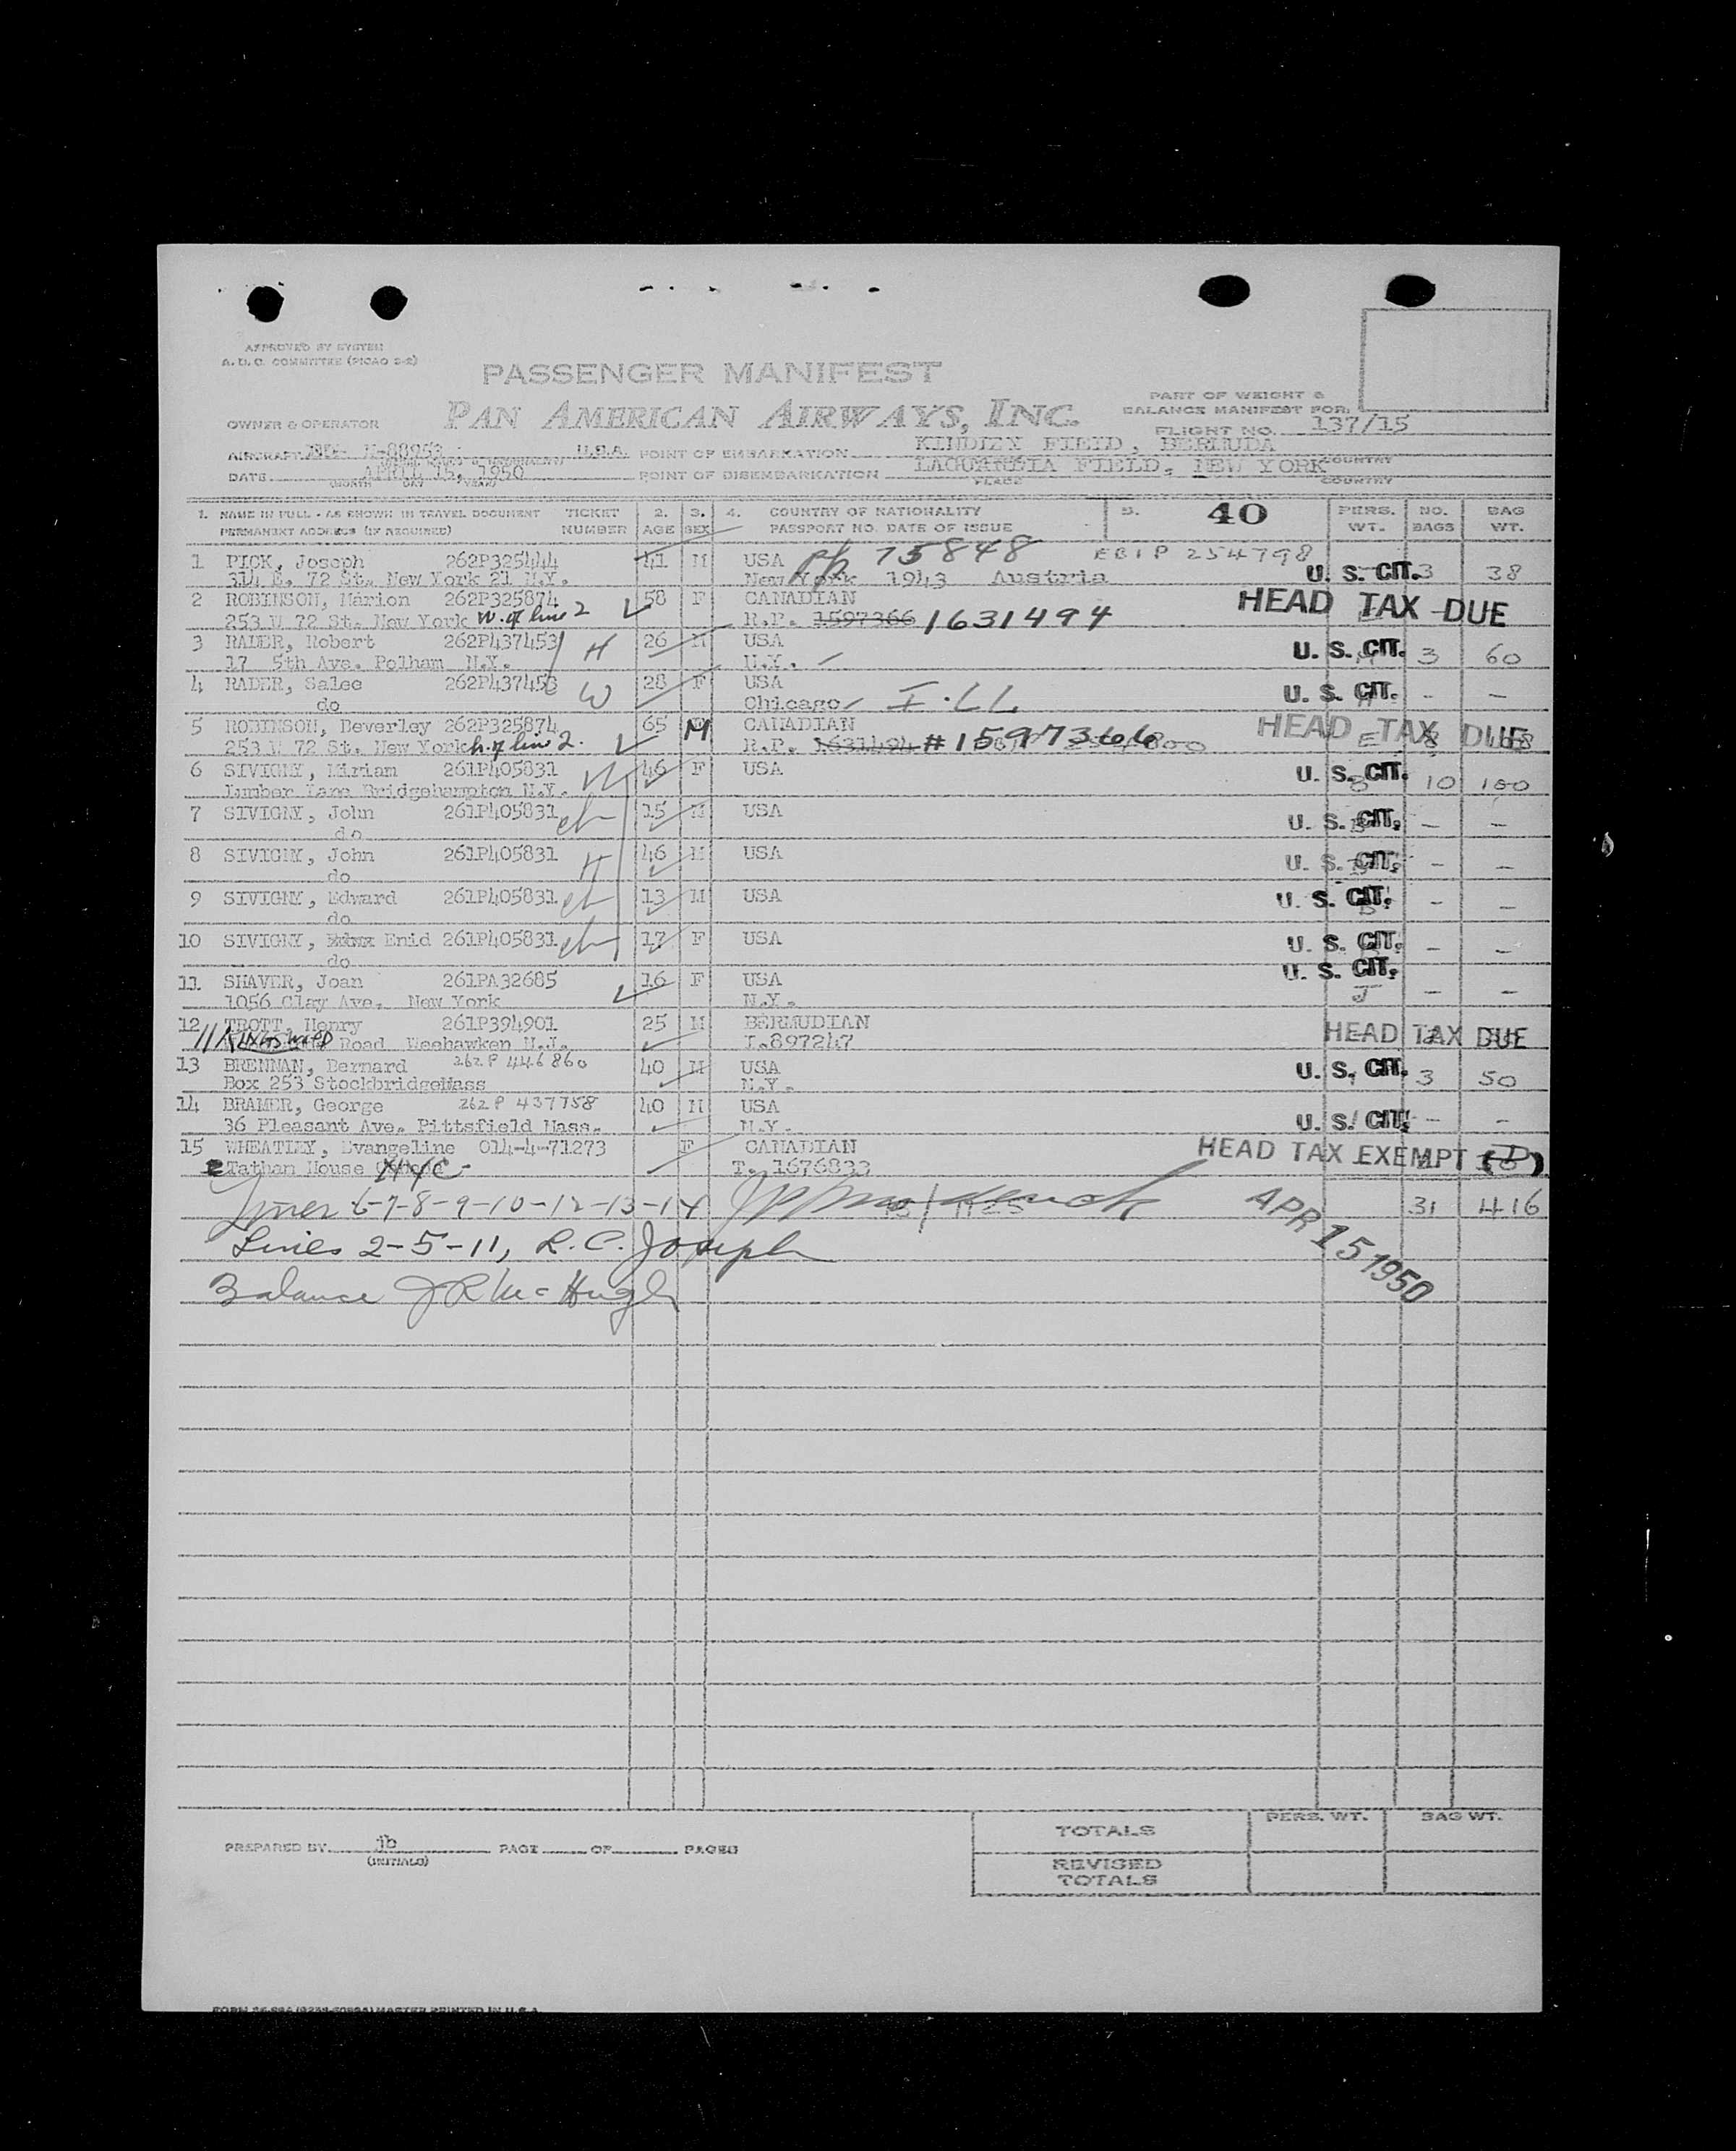 APPROVED BY SYSTEM
A.D.C. COMMITTEE (PICAO 2-2)
PASSENGER MANIFEST
PAN AMERICAN AIRWAYS, INC.
PART OF WEIGHT &
BALANCE MANIFEST FOR:
FLIGHT NO. 137/15
OWNER & OPERATOR
AIRCRAFT N-88953 U.S.A. POINT OF EMBARKATION KINDLEY FIELD, BERMUDA
DATE APRIL 15, 1950 POINT OF DISEMBARKATION LAGUARDIA FIELD, NEW YORK COUNTRY
(MONTH DAY YEAR) PLACE COUNTRY
1. NAME IN FULL - AS SHOWN IN TRAVEL DOCUMENT TICKET 2. 3. 4. COUNTRY OF NATIONALITY 5. 40 PERS. NO. BAG
PERMANENT ADDRESS (IF REQUIRED) NUMBER AGE SEX PASSPORT NO. DATE OF ISSUE WT. BAGS WT.
1 PICK, Joseph 262P325444 41 M USA pp 75848 EBIP 254798
314 E. 72 St. New York 21 N.Y. New York 1943 Austria U. S. CIT. 3 38
2 ROBINSON, Marion 262P325874 58 F CANADIAN HEAD TAX DUE
253 W 72 St. New York W. of line 2 R.P. 1597366 1631494
3 RADER, Robert 262P437453 H 26 M USA U. S. CIT. 3 60
17 5th Ave. Pelham N.Y. N.Y.
4 RADER, Salee 262P437453 W 28 F USA U. S. CIT. - -
do Chicago ILL
5 ROBINSON, Beverley 262P325874 65 M CANADIAN HEAD TAX DUE
253 W 72 St. New York h. of line 2. R.P. 1631494 #1597366
6 SIVIGNY, Miriam 261P405831 W 46 F USA U. S. CIT. 10 100
Lumber Lane Bridgehampton N.Y.
7 SIVIGNY, John 261P405831 ch 15 M USA U. S. CIT. - -
do
8 SIVIGNY, John 261P405831 H 46 M USA U. S. CIT. - -
do
9 SIVIGNY, Edward 261P405831 ch 13 M USA U. S. CIT. - -
do
10 SIVIGNY, Enid 261P405831 ch 17 F USA U. S. CIT. - -
do
11 SHAVER, Joan 261PA32685 16 F USA U. S. CIT.
1056 Clay Ave. New York N.Y. J - -
12 TROTT, Henry 261P394901 25 M BERMUDIAN HEAD TAX DUE
11 KINGSWOOD Road Weehawken N.J. I.897247
13 BRENNAN, Bernard 262P 446860 40 M USA U. S. CIT. 3 50
Box 253 Stockbridge Mass N.Y.
14 BRAMER, George 262P 437758 40 M USA U. S. CIT. - -
36 Pleasant Ave. Pittsfield Mass. N.Y.
15 WHEATLEY, Evangeline 014-4-71273 F CANADIAN HEAD TAX EXEMPT (D)
Tathan House NYC T. 1676833
Lines 6-7-8-9-10-12-13-14 31 416
Lines 2-5-11, R.C. Joseph APR 15 1950
Balance J R McHugh
TOTALS PERS. WT. BAG WT.
PREPARED BY jb PAGE OF PAGES
(INITIALS)
REVISED
TOTALS